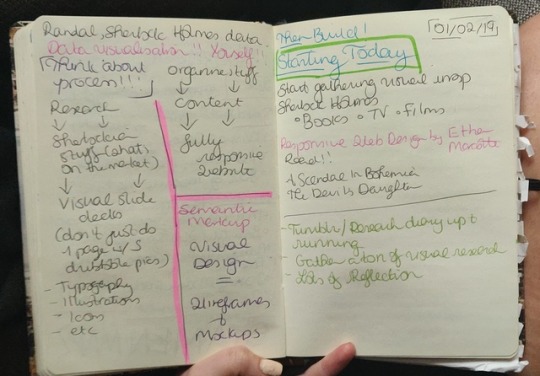 Randal, Sherlock Holmes data.
Data Visualisation!! Yourself!
Think about
process!!!
Research
Sherlockian
stuff (whats
on the market)
Visual slide
decks
(don't just do
1 page w/ 5
dribbble pics)
- Typography
- Illustrations
- Icons
- etc
organise stuff
content
fully
responsive
website
Semantic
Markup
Visual
Design
=
Wireframes
+
Mockups
Then Build!
01/02/19
Starting Today
Start gathering visual insp
Sherlock Holmes
• Books • TV • Films
Responsive Web Design by Ethan
Marcotte
Read!!
A Scandal in Bohemia
The Devil's Daughter
- Tumblr/Research diary up +
running
- Gather a ton of visual research
- Lots of Reflection